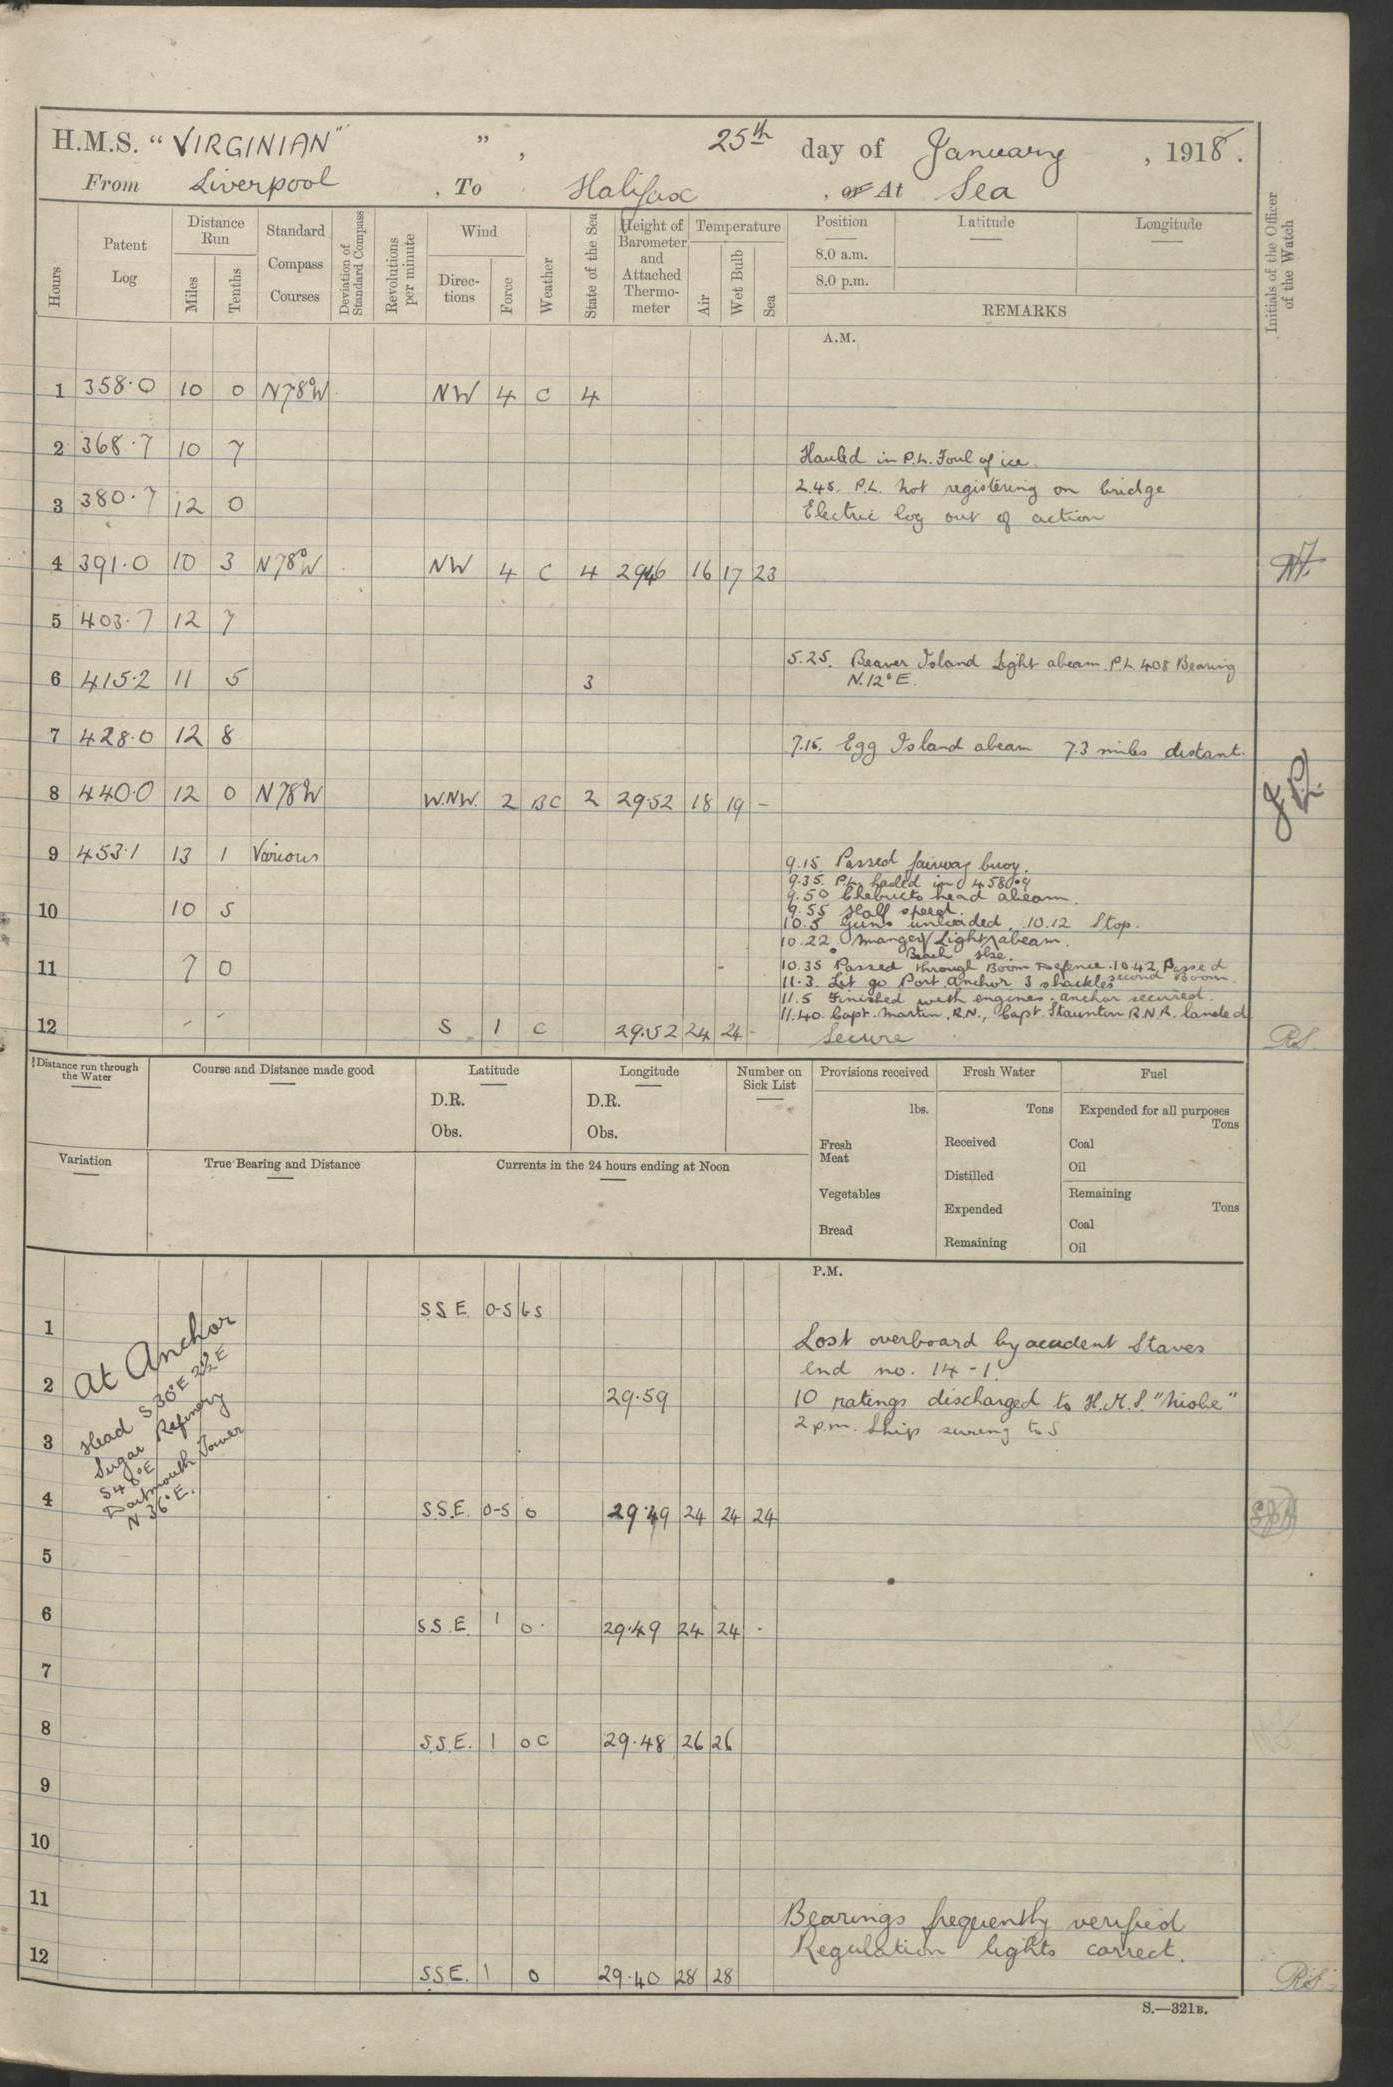 H.M.S. “VIRGINIAN” ” , 25th day of January , 1918.
From Liverpool , To Halifax , or At Sea
Hours
Patent Log
Distance Run
Miles
Tenths
Standard Compass Courses
Deviation of Standard Compass
Revolutions per minute
Wind
Direc-tions
Force
Weather
State of the Sea
Height of Barometer and Attached Thermo-meter
Temperature
Air
Wet Bulb
Sea
Position Latitude Longitude
8.0 a.m.
8.0 p.m.
REMARKS
Initials of the Officer of the Watch
A.M.
1 358.0 10 0 N78°W NW 4 C 4
2 368.7 10 7
Hauled in P.L. Foul of ice.
2.45. P.L. not registering on bridge
3 380.7 12 0
Electric log out of action
4 391.0 10 3 N78°W NW 4 C 4 2946 16 17 23
5 403.7 12 7
5.25. Beaver Island Light abeam. P.L 408 Bearing
N.12°E.
6 415.2 11 5 3
7 428.0 12 8
7.15. Egg Island abeam 7.3 miles distant.
8 440.0 12 0 N78W W.NW. 2 BC 2 29.52 18 19 -
9 453.1 13 1 Various
9.15 Passed fairway buoy.
9.35. P.L. haded in 458.9
9.50 Chebucto head abeam.
9.55 Half speed.
10 10 5
10.5 Guns unloaded. 10.12 Stop.
10.22 Manger Light abeam.
Beach Hse.
11 7 0
10.35 Passed through Boom Defence. 10.42 Passed
second Boom.
11.3. Let go Port anchor 3 shackles
11.5 Finished with engines. anchor secured.
11.40. Capt. Martin. R.N., Capt. Staunton R.N.R. landed
12 - - S 1 C 29.52 24 24 -
Secure
RS.
Distance run through the Water
Course and Distance made good
Latitude
D.R.
Obs.
Longitude
D.R.
Obs.
Number on Sick List
Provisions received
lbs.
Fresh Meat
Vegetables
Bread
Fresh Water
Tons
Received
Distilled
Expended
Remaining
Fuel
Expended for all purposes
Tons
Coal
Oil
Remaining
Tons
Coal
Oil
Variation
True Bearing and Distance
Currents in the 24 hours ending at Noon
P.M.
1 S.S.E. 0-5 bs
Lost overboard by accident Staves
end no. 14-1.
At Anchor
Head S 30°E 22½E
Sugar Refinery
S48°E
Dartmouth Tower
N 36°E.
2 29.59
10 ratings discharged to H.M.S. "Niobe"
2 p.m. Ship swung to S
3
4 S.S.E. 0-5 0 29.49 24 24 24
5
6 S.S.E. 1 0. 29.49 24 24 .
7
8 S.S.E. 1 0C 29.48 26 26
9
10
11
Bearings frequently verified
Regulation lights correct.
12 S.S.E. 1 0 29.40 28 28
RS
S.—321B.